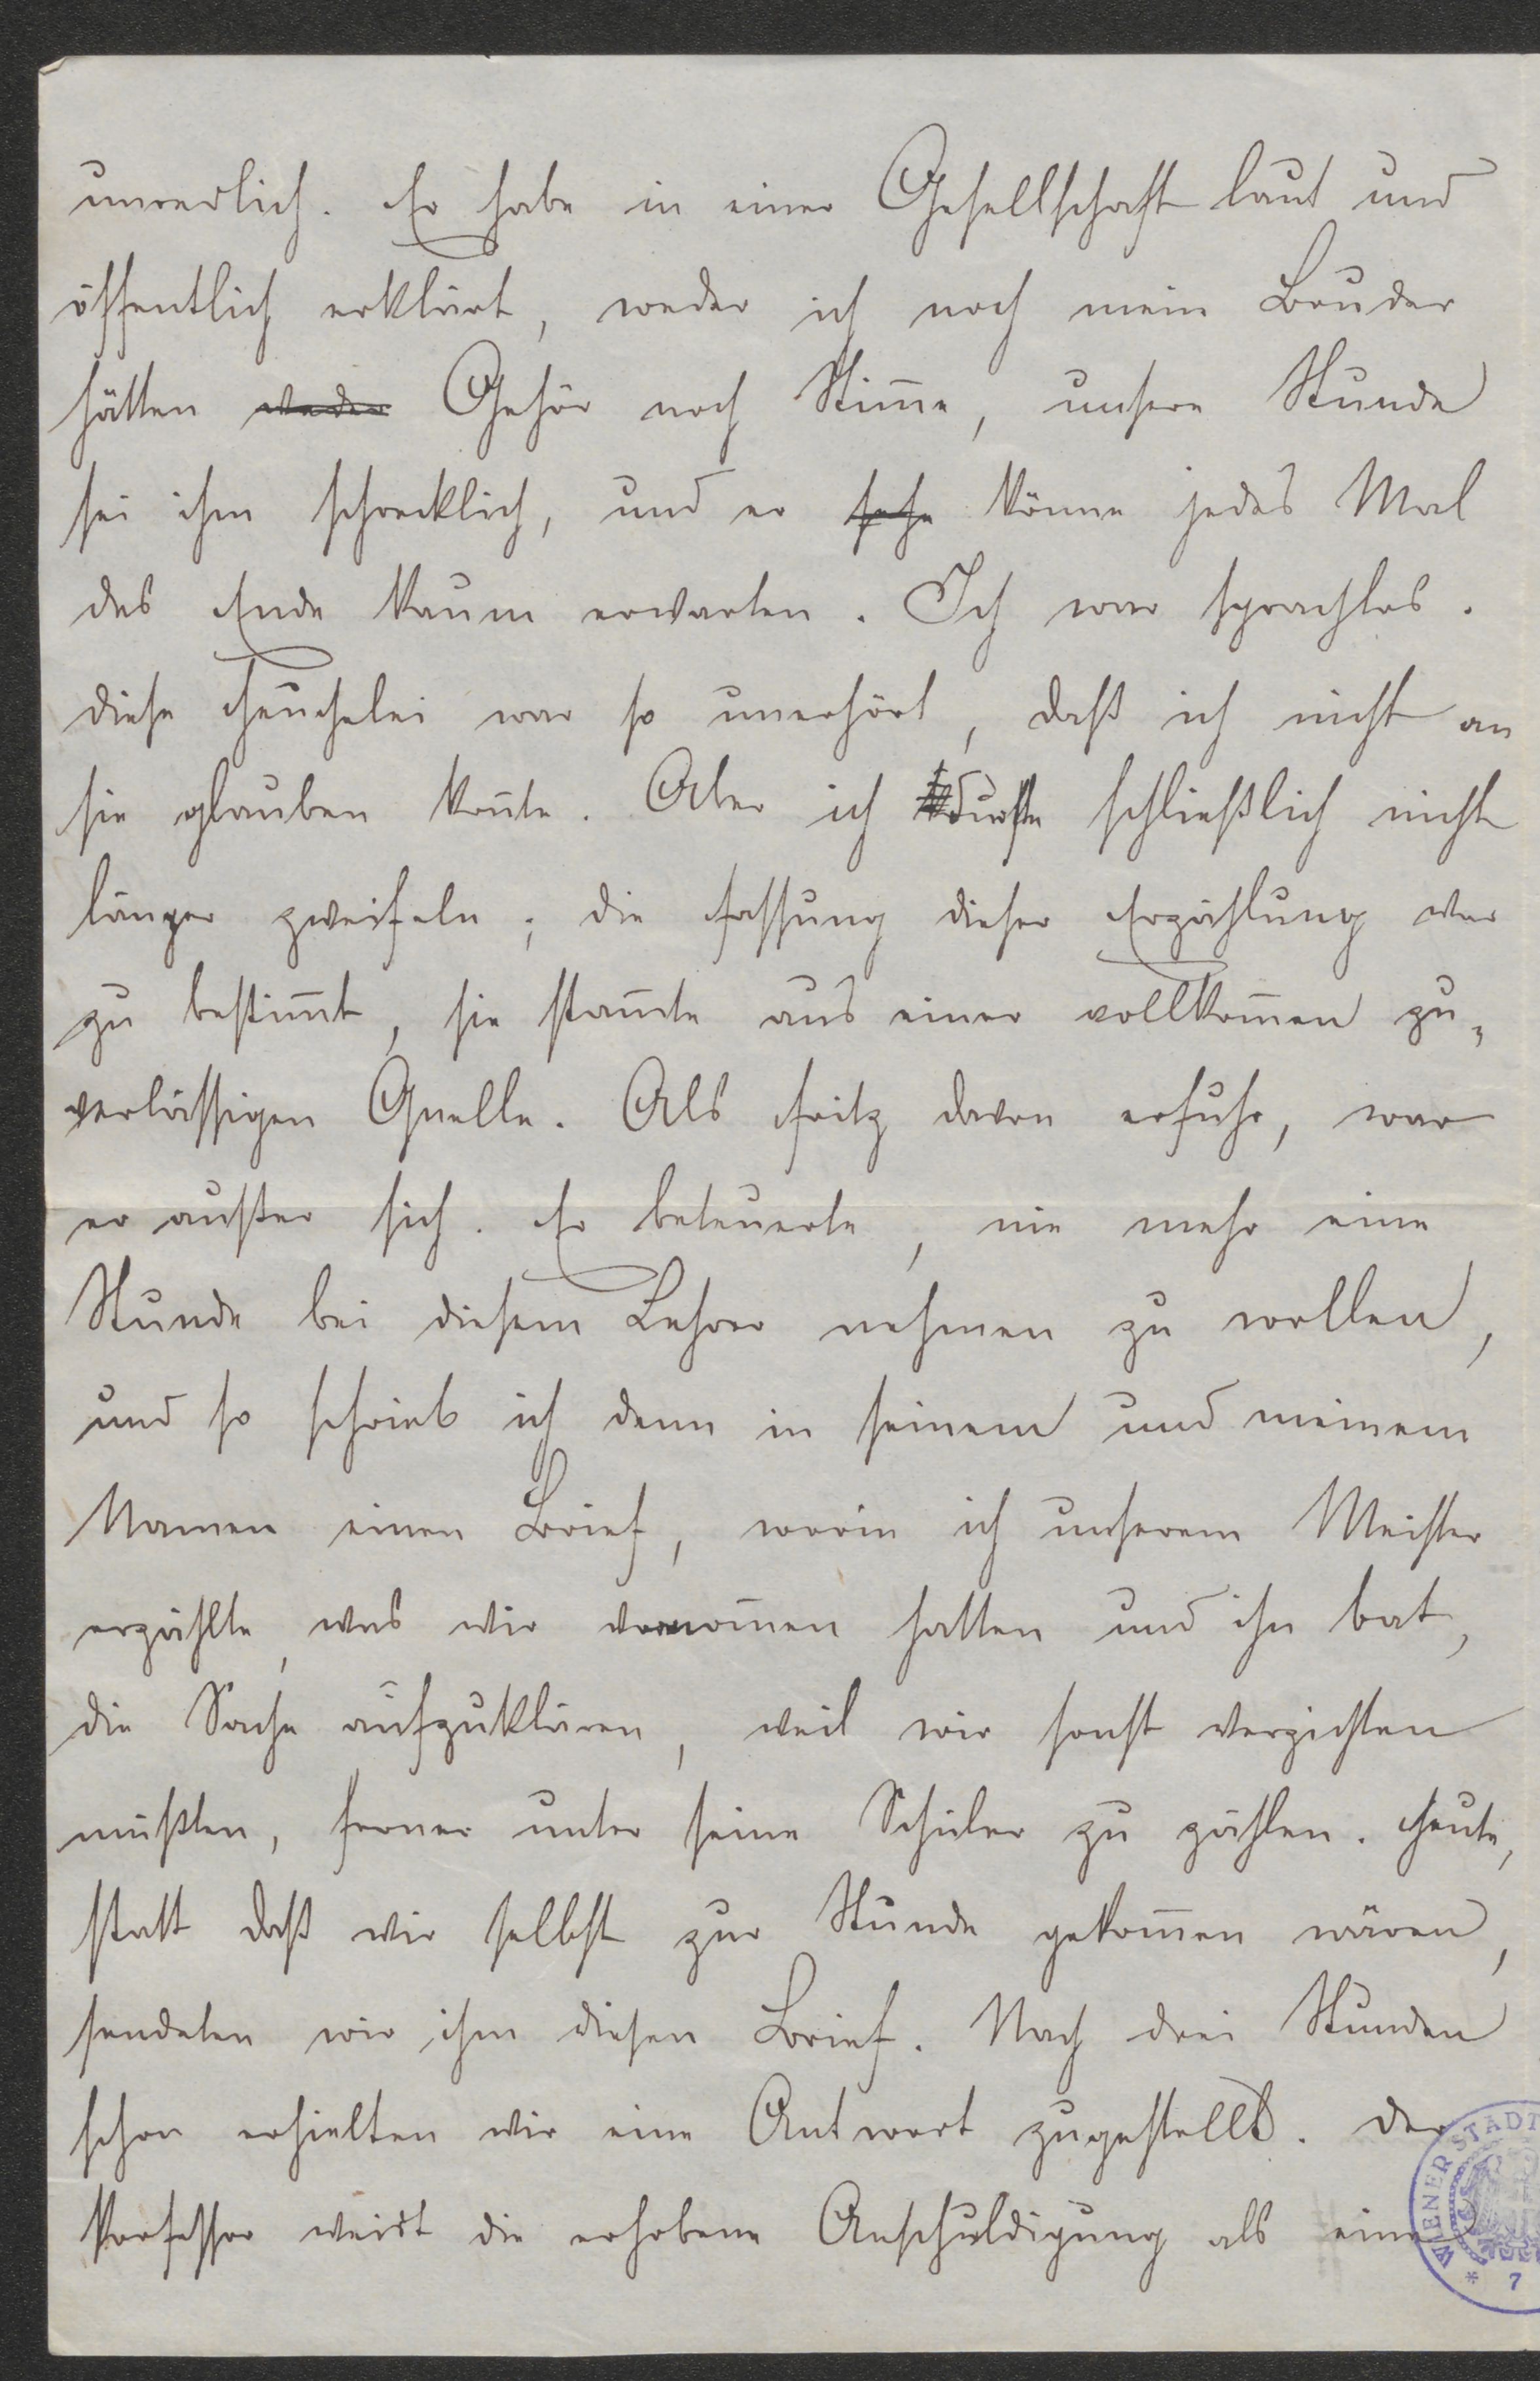 unredlich. Er habe in einer Gesellschaft laut und
öffentlich erklärt, weder ich noch mein Bruder
hätten weder Gehör noch Stim̄e, unsere Stunde
sei ihm schrecklich, und er sehe könne jedes Mal
das Ende kaum erwarten. Ich war sprachlos.
Diese Heuchelei war so unerhört, daß ich nicht an
sie glauben kon̄te. Aber ich durfte schließlich nicht
länger zweifeln; die Fassung dieser Erzählung war
zu bestim̄t, sie stam̄te aus einer vollkom̄en zu„
verlässigen Quelle. Als Fritz davon erfuhr, war
er außer sich. Er beteuerte, nie mehr eine
Stunde bei diesem Lehrer nehmen zu wollen,
und so schrieb ich denn in seinem und meinem
Namen einen Brief, worin ich unserem Meister
erzählte, was wir vernom̄en hatten und ihn bat,
die Sache aufzuklären, weil wir sonst verzichten
müßten, ferner unter seine Schüler zu zählen. Heute,
statt daß wir selbst zur Stunde gekom̄en wären,
sendeten wir ihm diesen Brief. Nach drei Stunden
schon erhielten wir eine Antwort zugestellt. Der
Professor weist die erhobene Anschuldigung als eine
WIENER STADT
* 7